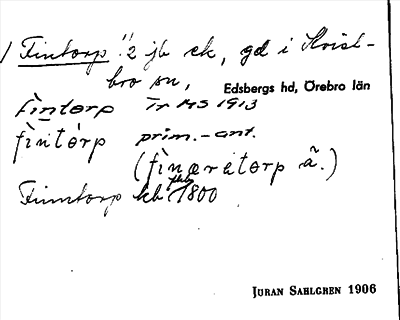 Fintorp 1/2 jb ck, gd i Kvist-
bro sn,
Edsbergs hd, Örebro län
fìntorp TrMS 1913
fìntòrp prim.-ant.
(fìnəretorp ä.)
Finntorp kb 1800
JURAN SAHLGREN 1906